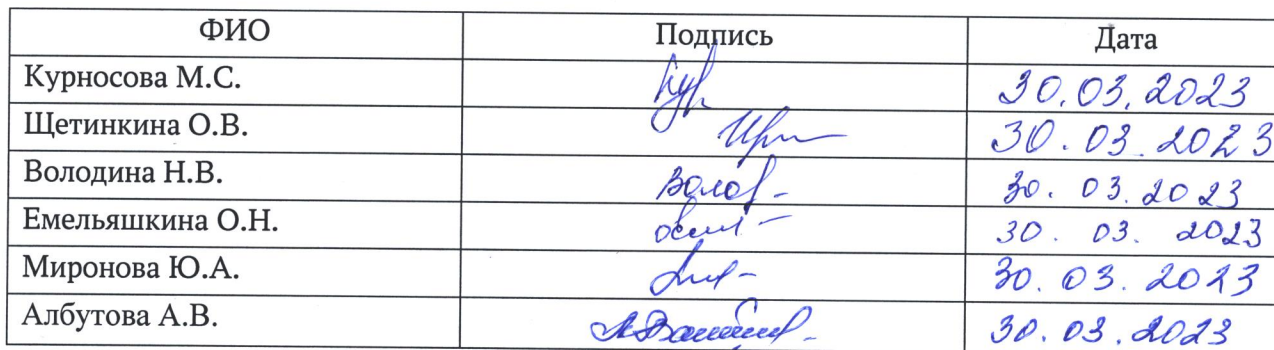 ФИО Подпись Дата
Курносова М.С. 30.03.2023
Щетинкина О.В. 30.03.2023
Володина Н.В. 30.03.2023
Емельяшкина О.Н. 30.03.2023
Миронова Ю.А. 30.03.2023
Албутова А.В. 30.03.2023